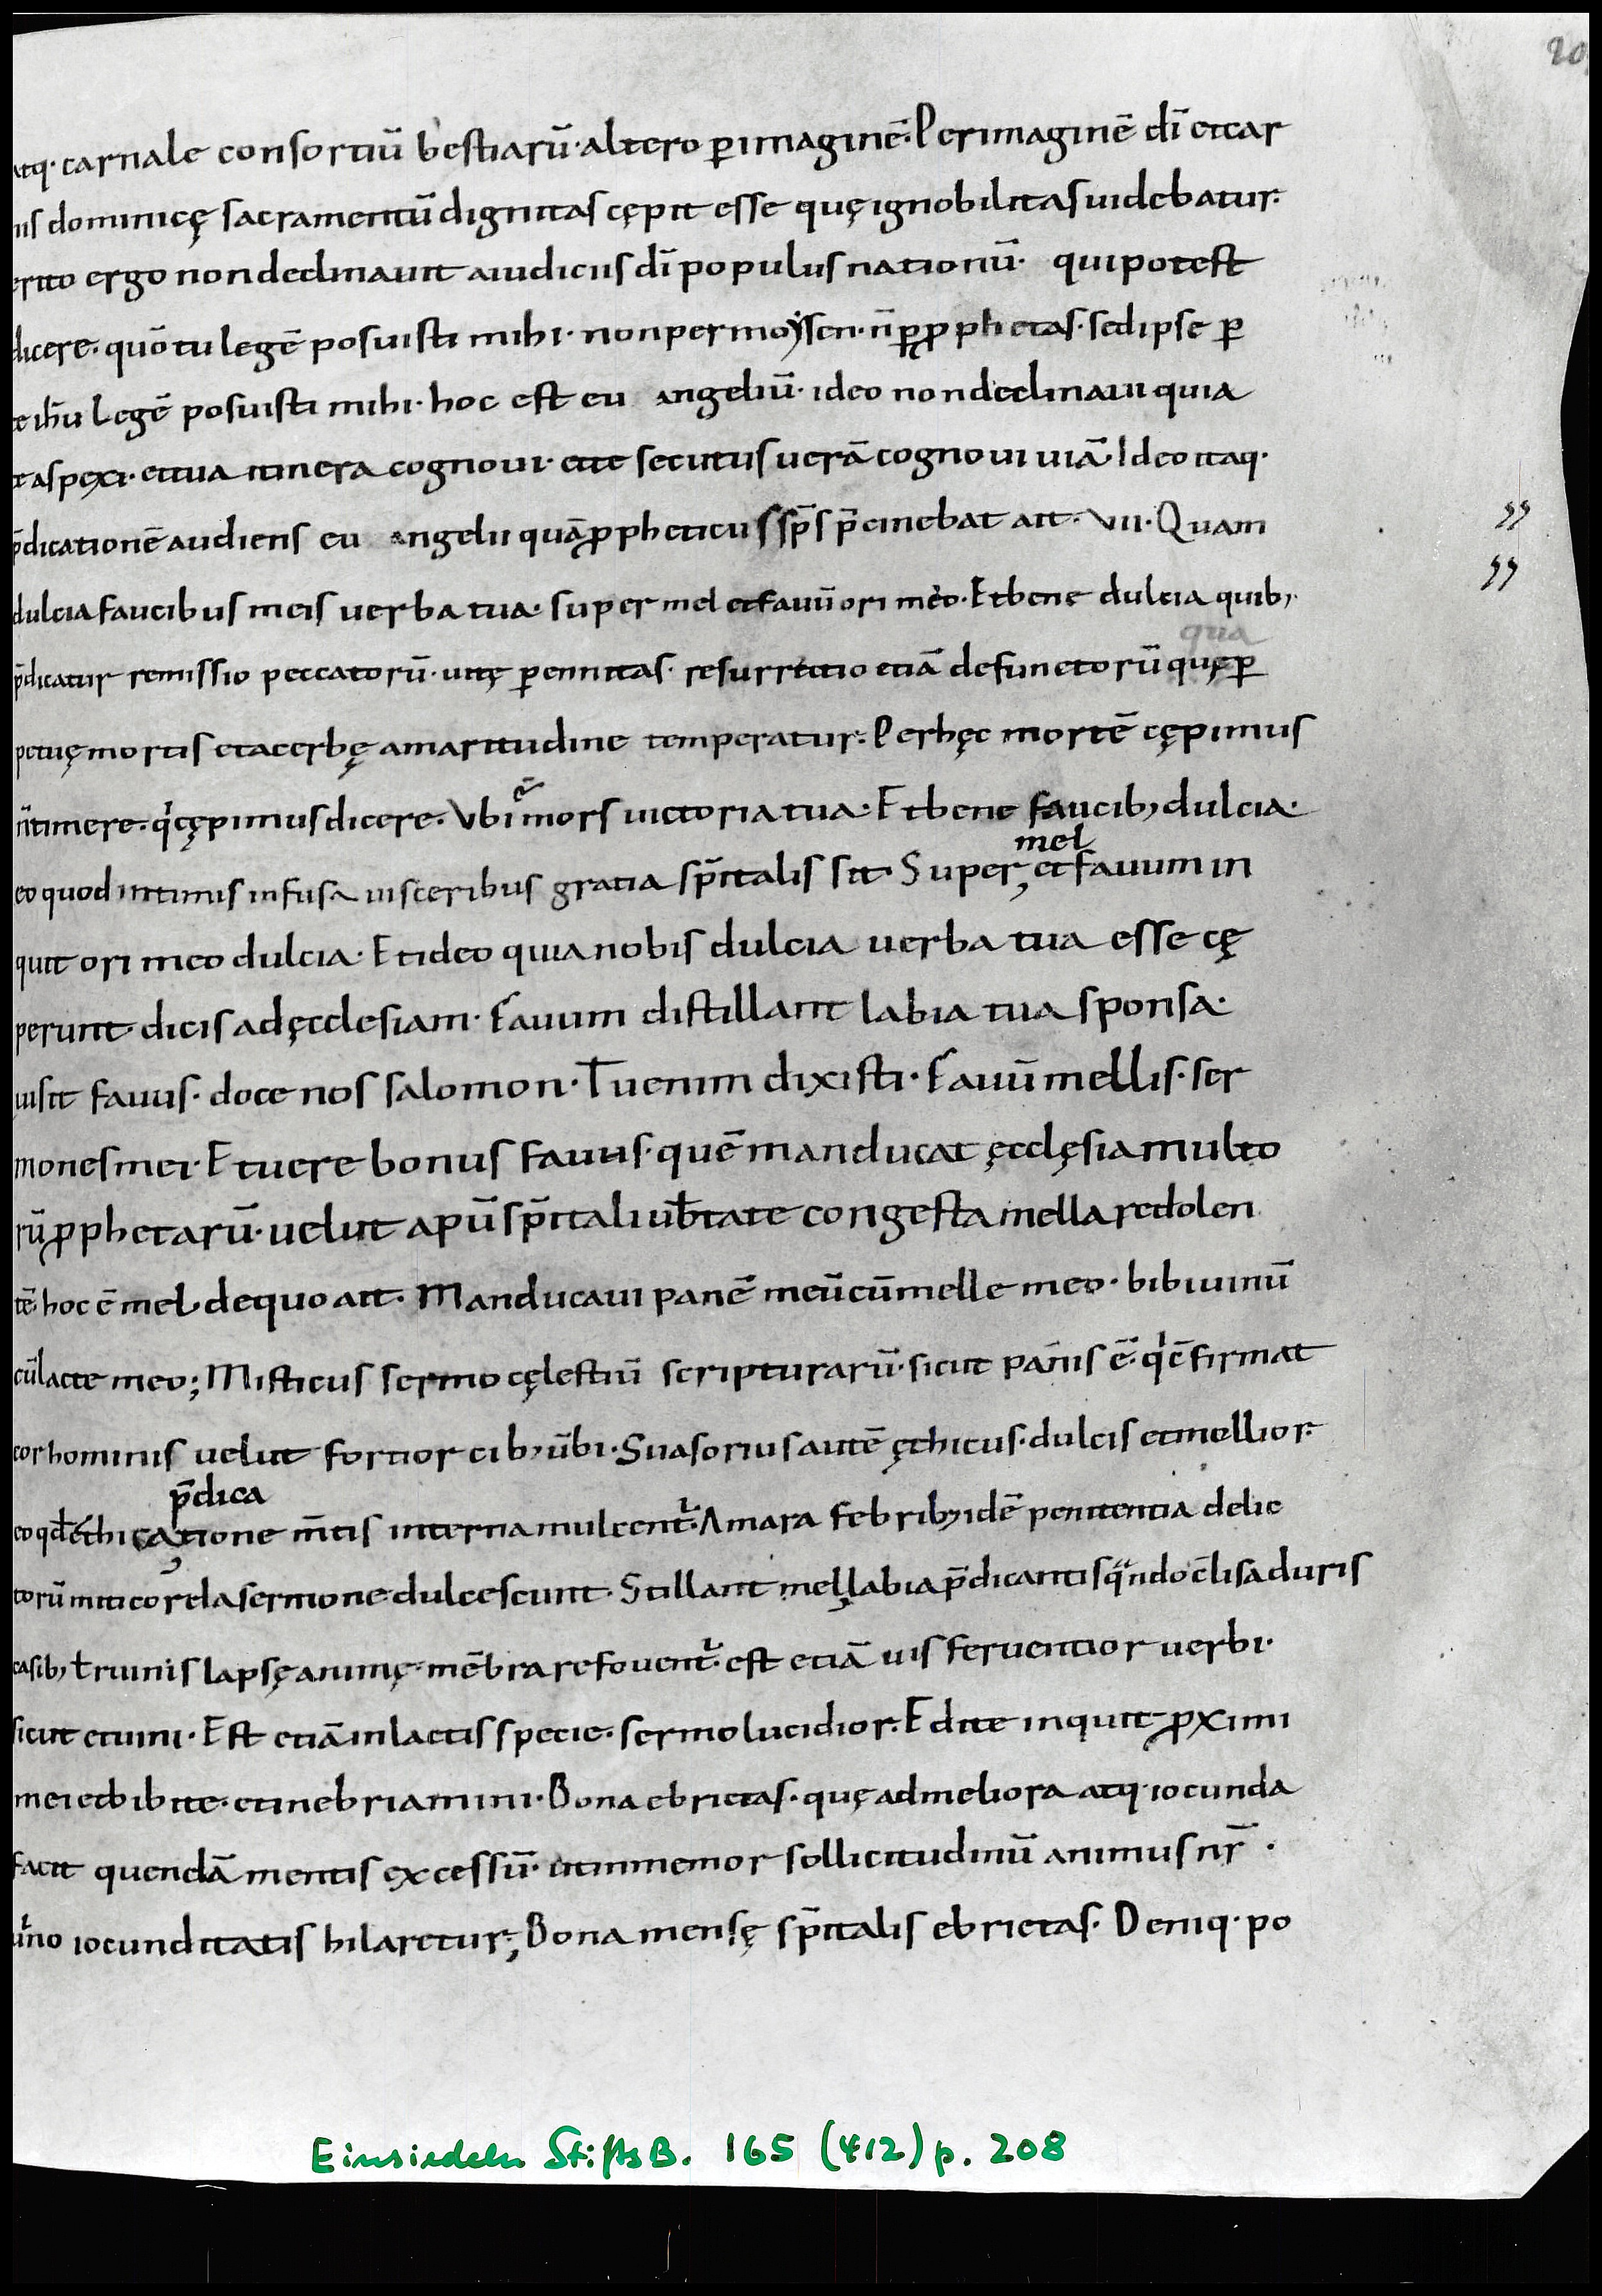 20
atq· carnale consortiū bestiarū· altero ꝑ imaginē· Per imaginē dī et car
nis dominicę sacramentū dignitas cępit esse quę ignobilitas uidebatur·
erito ergo non declinauit a iudiciis dī populus nationū· qui potest
dicere· quō tu legē posuisti mihi· non per moẏsen· n̄ ꝑ ꝓphetas· sed ipse ꝑ
te ih̄u legē posuisti mihi· hoc est eu angeliū· ideo non declinaui quia
te aspexi· et tua itinera cognoui· et te secutus uerā cognoui uiā· Ideo itaq·
p̄dicationē audiens eu angelii quā ꝓpheticus sp̄s p̄cinebat ait· VII· Quam
dulcia faucibus meis uerba tua· super mel et fauū ori meo· Et bene dulcia quib;
qua
p̄dicatur remissio peccatorū· uitę ꝑennitas· resurrectio etiā defunctorū quę ꝑ
petuę mortis et acerbę amaritudine temperatur· Per hęc mortē cępimus
n̄ timere· qͥ cępimus dicere· Vbi ē mors uictoria tua· Et bene faucib; dulcia·
mel
eo quod intimis infusa uisceribus gratia sp̄italis sit· Super, et fauum in
quit ori meo dulcia· Et ideo quia nobis dulcia uerba tua esse cę
perunt dicis ad ęcclesiam· Fauum distillant labia tua sponsa·
uisit fauus· doce nos salomon· Tu enim dixisti· Fauū mellis· ser
mones mei· Et uere bonus fauus· quē manducat ęcclęsia multo
rū ꝓphetarū· uelut apū sp̄itali ub̄tate congesta mella redolen
tē· hoc ē mel de quo ait· Manducaui panē meū cū melle meo· bibi uinū
cū lacte meo; Misticus sermo cęlestiū scripturarū· sicut panis ē· qͥ c̄firmat
cor hominis uelut fortior cib; ūbi· Suasorius autē ęthicus· dulcis et mellior·
p̄dica
eo qd̄ ethica,tione m̄tis interna mulcent᷑· Amara febrib; idē penitentia delic
torū miti cordela sermone dulcescunt· Stillant mel labia p̄dicantis qᵃndo c̄lisa duris
casib; ƚ ruinis lapsę animę mēbra refouent᷑· est etiā uis feruentior uerbi·
sicut et uini· Est etiā in lactis specie· sermo lucidior· Edite inquit ꝓximi
mei et bibite· et inebriamini· Bona ebrietas· quę ad meliora atq· iocunda
facit quendā mentis excessū· ut inmemor sollicitudinū animus nr̄·
uͥno iocunditatis hilaretur; Bona mensę sp̄italis ebrietas· Deniq· po
Einsiedeln StiftsB. 165 (412) p. 208